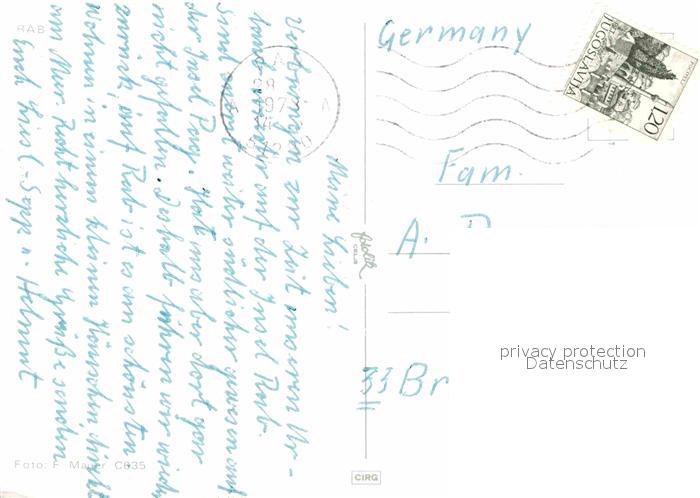 RAB
Meine Lieben!
Verbringen zur Zeit unseren Ur-
laub wieder auf der Insel Rab.
Sind zuerst weiter südlicher gewesen auf
der Insel Pag. Hat uns aber dort gar
nicht gefallen. Deshalb fuhren wir wieder
zurück, auf Rab ist es am schönsten.
Wohnen in einem kleinen Häuschen direkt
am Meer. Recht herzliche Grüße senden
Euch Liesl-Sepp u. Helmut
Foto: F Mauer C635
fotolik
CELJE
CIRG
JUGOSLAVIJA
1,20
Germany
Fam.
A.
33 Br
privacy protection
Datenschutz